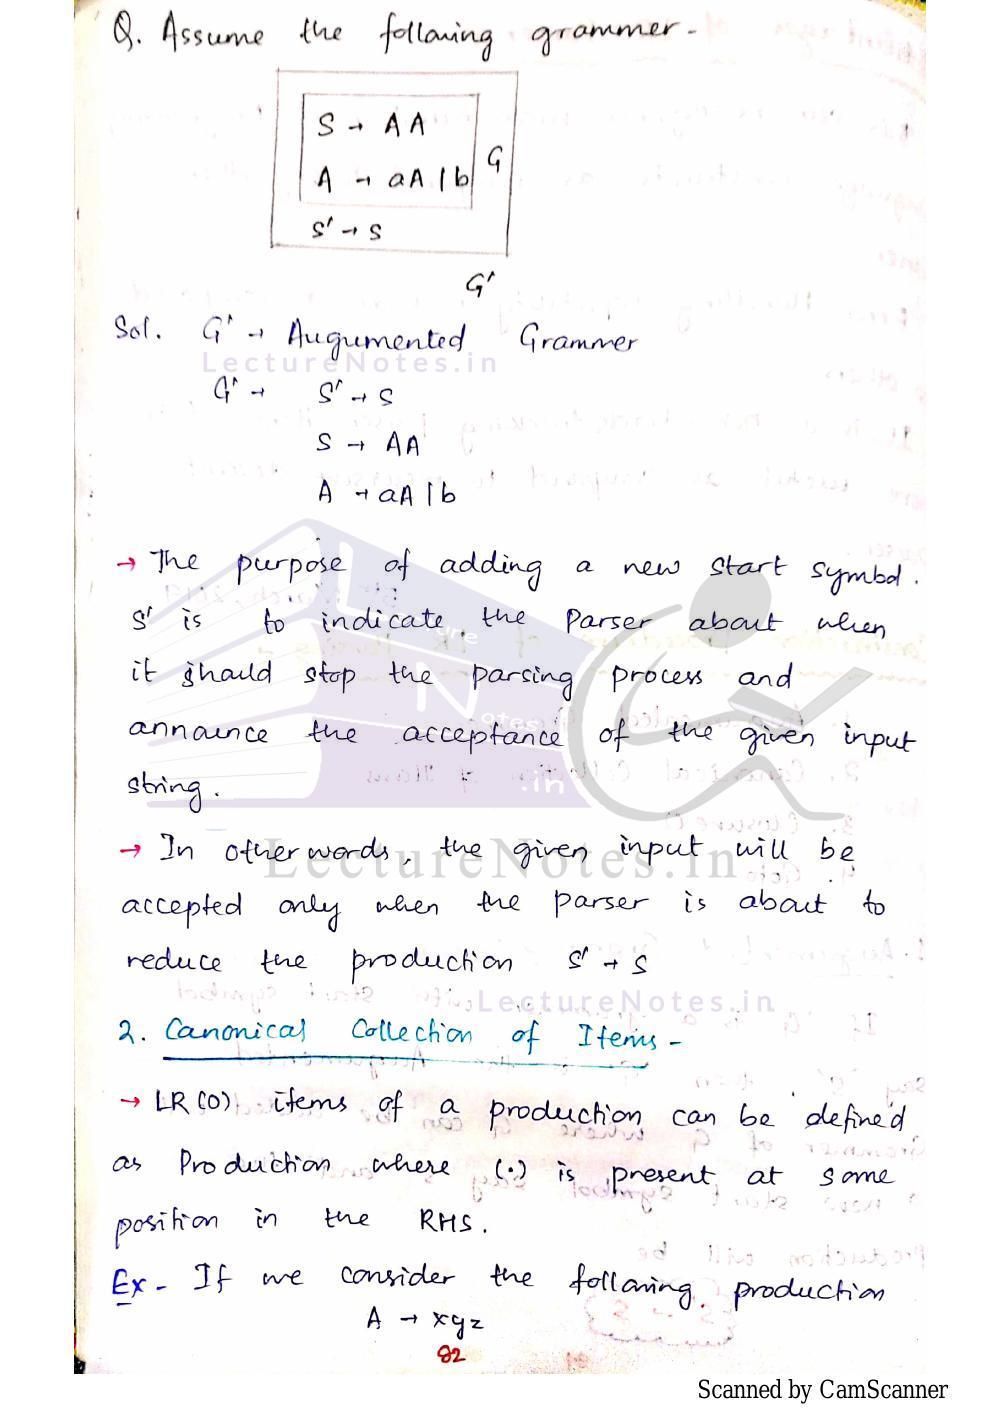 Q. Assume the following grammer -
S → AA
A → aA | b
G
S' → S
G'
Sol. G' → Augumented Grammer
LectureNotes.in
G' → S' → S
S → AA
A → aA | b
→ The purpose of adding a new start symbol.
S' is to indicate the Parser about when
it should stop the parsing process and
annaunce the acceptance of the given input
string.
→ In other words, the given input will be
LectureNotes.in
accepted only when the parser is about to
reduce the production S' → S
LectureNotes.in
2. Canonical Collection of Items -
→ LR(0) items of a production can be defined
as Production where (.) is present at some
position in the RHS.
Ex - If we consider the following production
A → xyz
82
Scanned by CamScanner